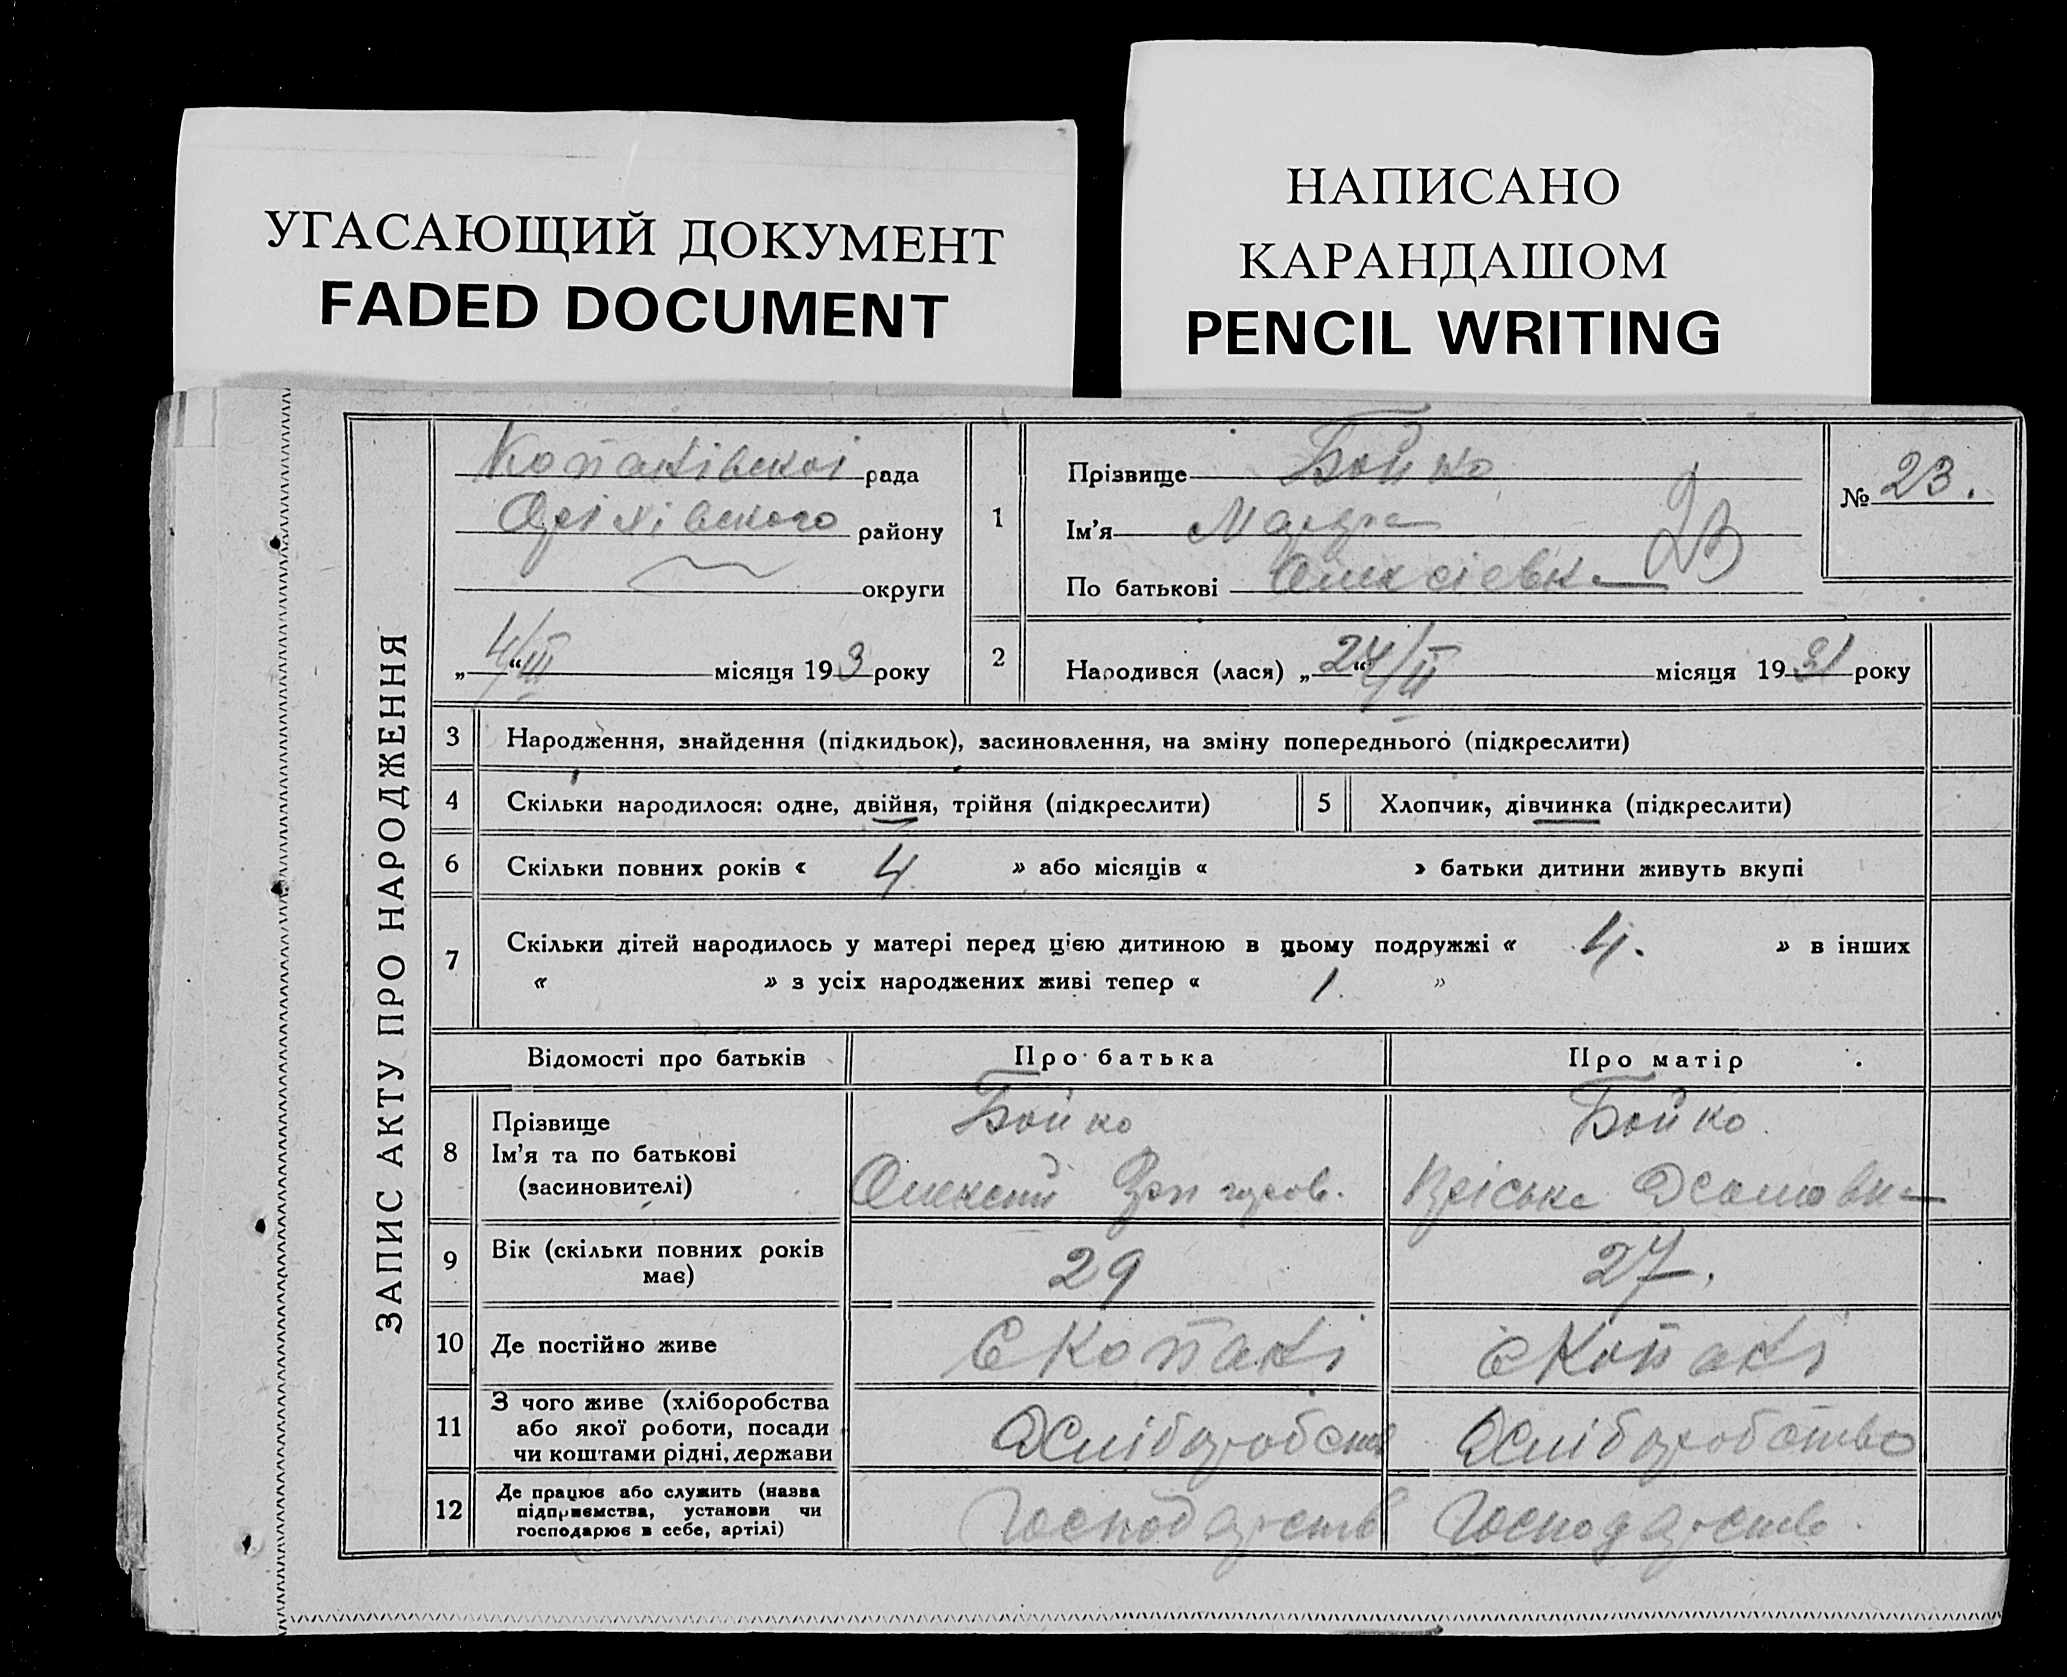 УГАСАЮЩИЙ ДОКУМЕНТ
FADED DOCUMENT
НАПИСАНО
КАРАНДАШОМ
PENCIL WRITING
ЗАПИС АКТУ ПРО НАРОДЖЕННЯ
Копаківскої рада
Оріхівского району
округи
„4/III“ місяця 193 року
1
Прізвище Бойко
Ім’я
По батькові Олексієвна
№ 23.
2
Народився (лася) „24/II“ місяця 1931 року
3 Народження, знайдення (підкидьок), засиновлення, на зміну попереднього (підкреслити)
4 Скільки народилося: одне, двійня, трійня (підкреслити)
5 Хлопчик, дівчинка (підкреслити)
6 Скільки повних років « 4 » або місяців « » батьки дитини живуть вкупі
7 Скільки дітей народилось у матері перед цією дитиною в цьому подружжі « 4. » в інших
« » з усіх народжених живі тепер « 1. »
Відомості про батьків Про батька Про матір
8 Прізвище Бойко Бойко
Ім’я та по батькові
(засиновителі) Олексій Григоров.
9 Вік (скільки повних років
має) 29 27.
10 Де постійно живе с Копакі с Копакі
11 З чого живе (хліборобства
або якої роботи, посади
чи коштами рідні, держави Хліборобств Хліборобство
12 Де працює або служить (назва
підприємства, установи чи
господарює в себе, артілі) Господарств Господарств.